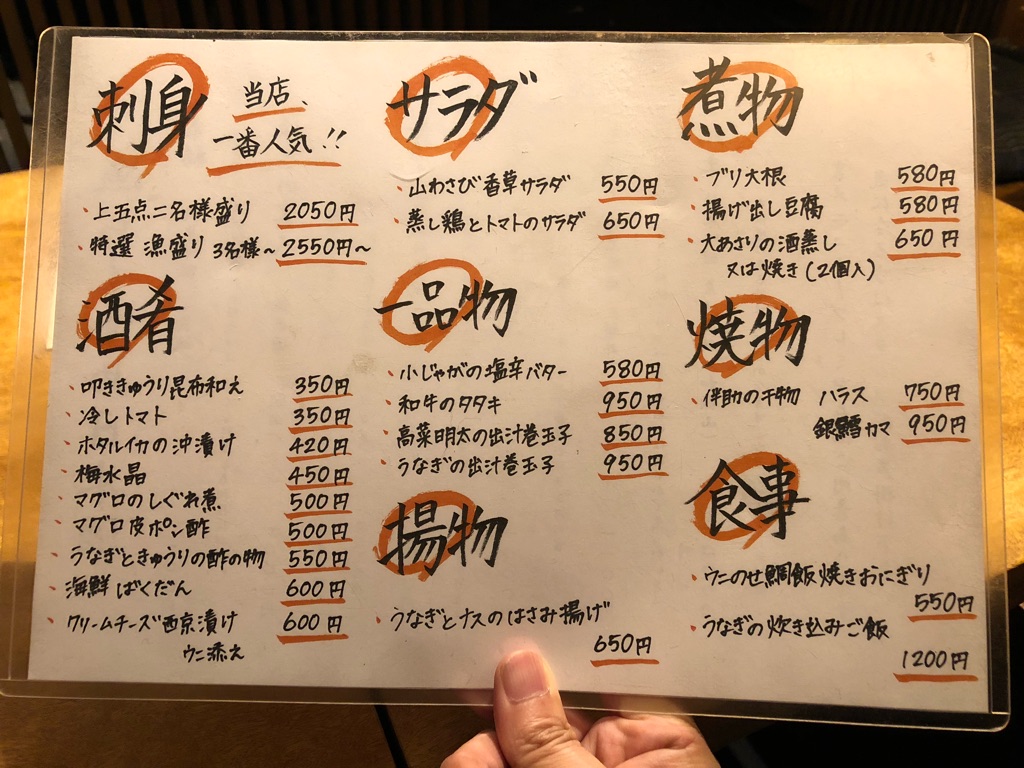 刺身
当店、
一番人気!!
・上五点二名様盛り 2050円
・特選 漁盛り 3名様~ 2550円~
酒肴
・叩ききゅうり昆布和え 350円
・冷しトマト 350円
・ホタルイカの沖漬け 420円
・梅水晶 450円
・マグロのしぐれ煮 500円
・マグロ皮ポン酢 500円
・うなぎときゅうりの酢の物 550円
・海鮮ばくだん 600円
・クリームチーズ西京漬け 600円
ウニ添え
サラダ
・山わさび香草サラダ 550円
・蒸し鶏とトマトのサラダ 650円
一品物
・小じゃがの塩辛バター 580円
・和牛のタタキ 950円
・高菜明太の出汁巻玉子 850円
・うなぎの出汁巻玉子 950円
揚物
・うなぎとナスのはさみ揚げ
650円
煮物
・ブリ大根 580円
・揚げ出し豆腐 580円
・大あさりの酒蒸し 650円
又は焼き(2個入)
焼物
・伴助の干物 ハラス 750円
銀鱈カマ 950円
食事
・ウニのせ鯛飯焼きおにぎり
550円
・うなぎの炊き込みご飯
1200円